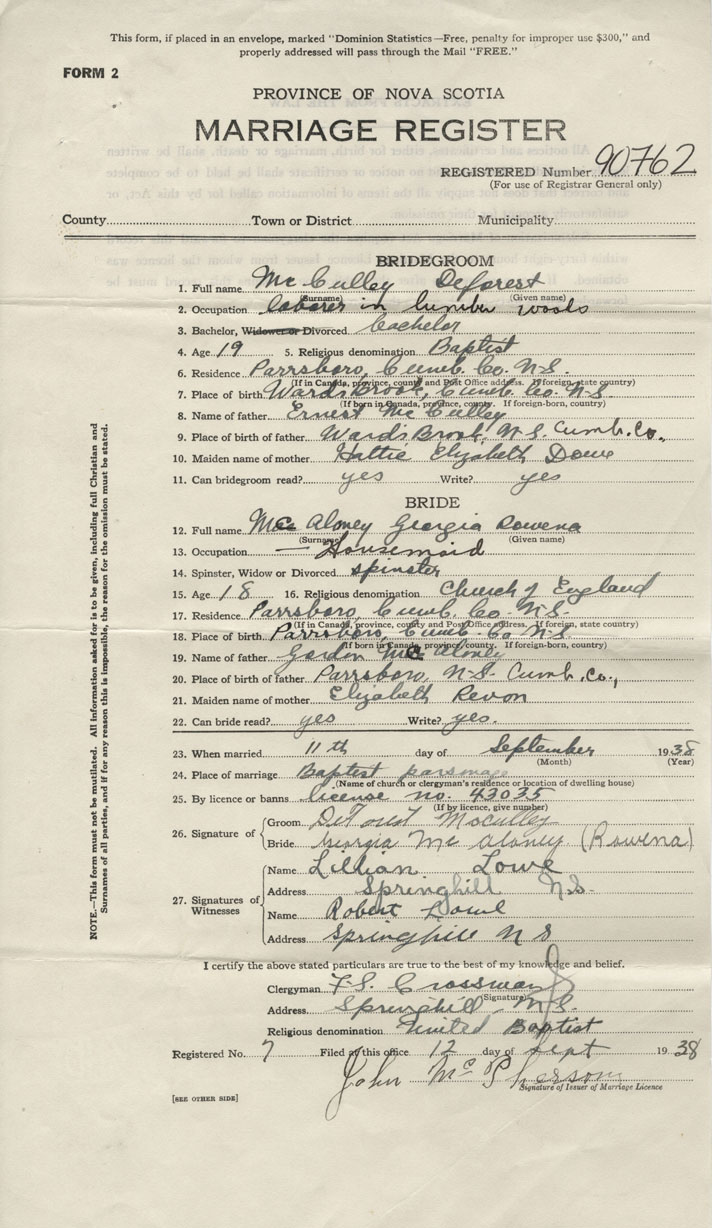 This form, if placed in an envelope, marked "Dominion Statistics—Free, penalty for improper use $300," and
properly addressed will pass through the Mail "FREE."
FORM 2
PROVINCE OF NOVA SCOTIA
MARRIAGE REGISTER
REGISTERED Number 90762
(For use of Registrar General only)
County Town or District Municipality
BRIDEGROOM
1. Full name McCulley Deforest
(Surname) (Given name)
2. Occupation laborer in lumber woods
3. Bachelor, Widower or Divorced bachelor
4. Age 19 5. Religious denomination Baptist
6. Residence Parrsboro, Cumb. Co. N-S.
(If in Canada, province, county and Post Office address. If foreign, state country)
7. Place of birth Wards Brook, Cumb. Co. N-S.
(If born in Canada, province, county. If foreign-born, country)
8. Name of father Ernest McCulley
9. Place of birth of father Wards Brook, N-S. Cumb. Co.
10. Maiden name of mother Hattie Elizabeth Dowe
11. Can bridegroom read? yes Write? yes
BRIDE
12. Full name McAloney Georgia Rowena
(Surname) (Given name)
13. Occupation — Housemaid
14. Spinster, Widow or Divorced spinster
15. Age 18 16. Religious denomination Church of England
17. Residence Parrsboro, Cumb. Co. N-S.
(If in Canada, province, county and Post Office address. If foreign, state country)
18. Place of birth Parrsboro, Cumb. Co N-S.
(If born in Canada, province, county. If foreign-born, country)
19. Name of father Gordon McAloney
20. Place of birth of father Parrsboro, N-S. Cumb. Co.,
21. Maiden name of mother Elizabeth Revon
22. Can bride read? yes Write? yes.
23. When married 11th day of September 1938
(Month) (Year)
24. Place of marriage Baptist parsonage
(Name of church or clergyman's residence or location of dwelling house)
25. By licence or banns license no. 43035
(If by licence, give number)
26. Signature of Groom DeForest McCulley
Bride Georgia McAloney (Rowena)
27. Signatures of Witnesses
Name Lillian Lowe
Address Springhill N.S.
Name Robert Lowe
Address Springhill N S
I certify the above stated particulars are true to the best of my knowledge and belief.
Clergyman F. S. Crossway
(Signature)
Address Springhill, N.S.
Religious denomination United Baptist
Registered No. 7 Filed at this office 12 day of Sept 1938
John McPherson
Signature of Issuer of Marriage Licence
[SEE OTHER SIDE]
NOTE.—This form must not be mutilated. All information asked for is to be given, including full Christian and
Surnames of all parties, and if for any reason this is impossible, the reason for the omission must be stated.